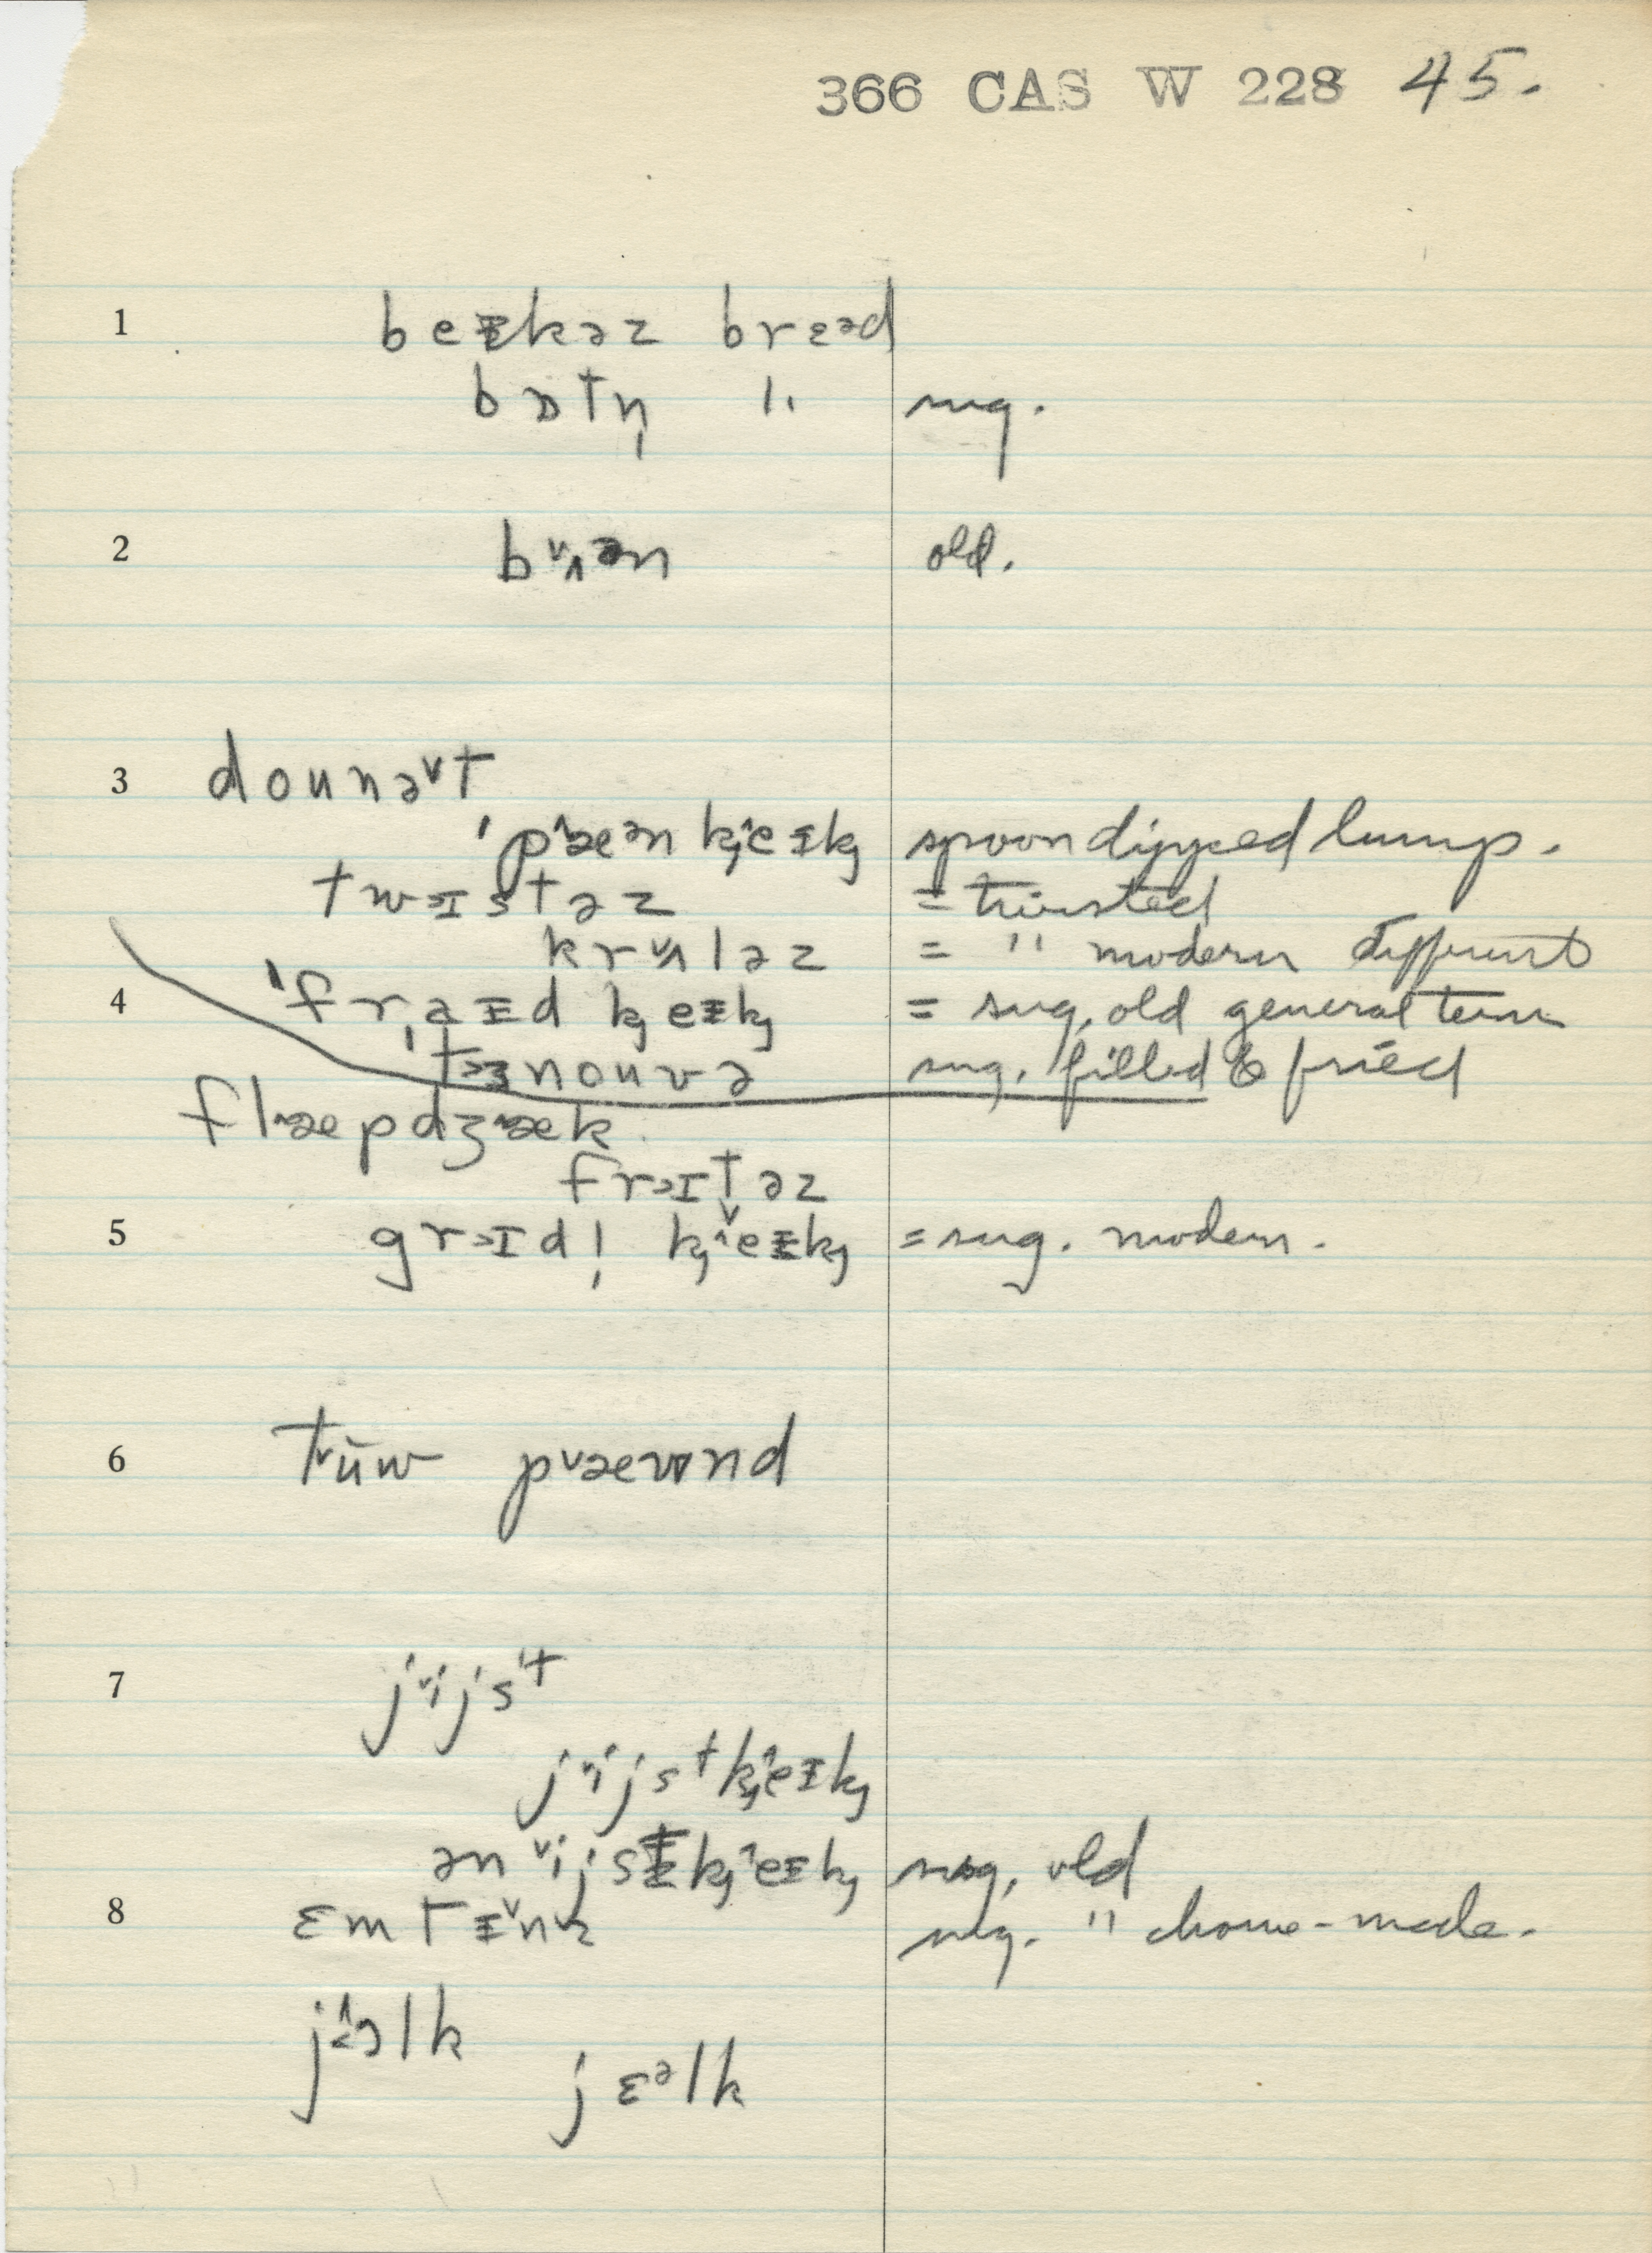 366 CAS W 228 45.
1 beᵻkəz brɛəd
bɔtn̩ " sug.
2 bʌən old.
3 dounət
ˈpæən kj̑eᵻkj spoon dipped lump.
twɪstəz = twisted
krʌləz = " modern different
4 ˈfraᵻd kjeᵻkj = sug, old general term
ˈtɜnouvə sug. filled & fried
flæpdʒæk
frɪtəz
5 grɪdl̩ kjeᵻkj = sug. modern.
6 tūw pæwnd
7 jijst
jijstkjeᵻkj
ənijstkjeᵻkj sug, old
8 ɛmtᵻnz sug. " home-made.
jɔlk
jɛəlk